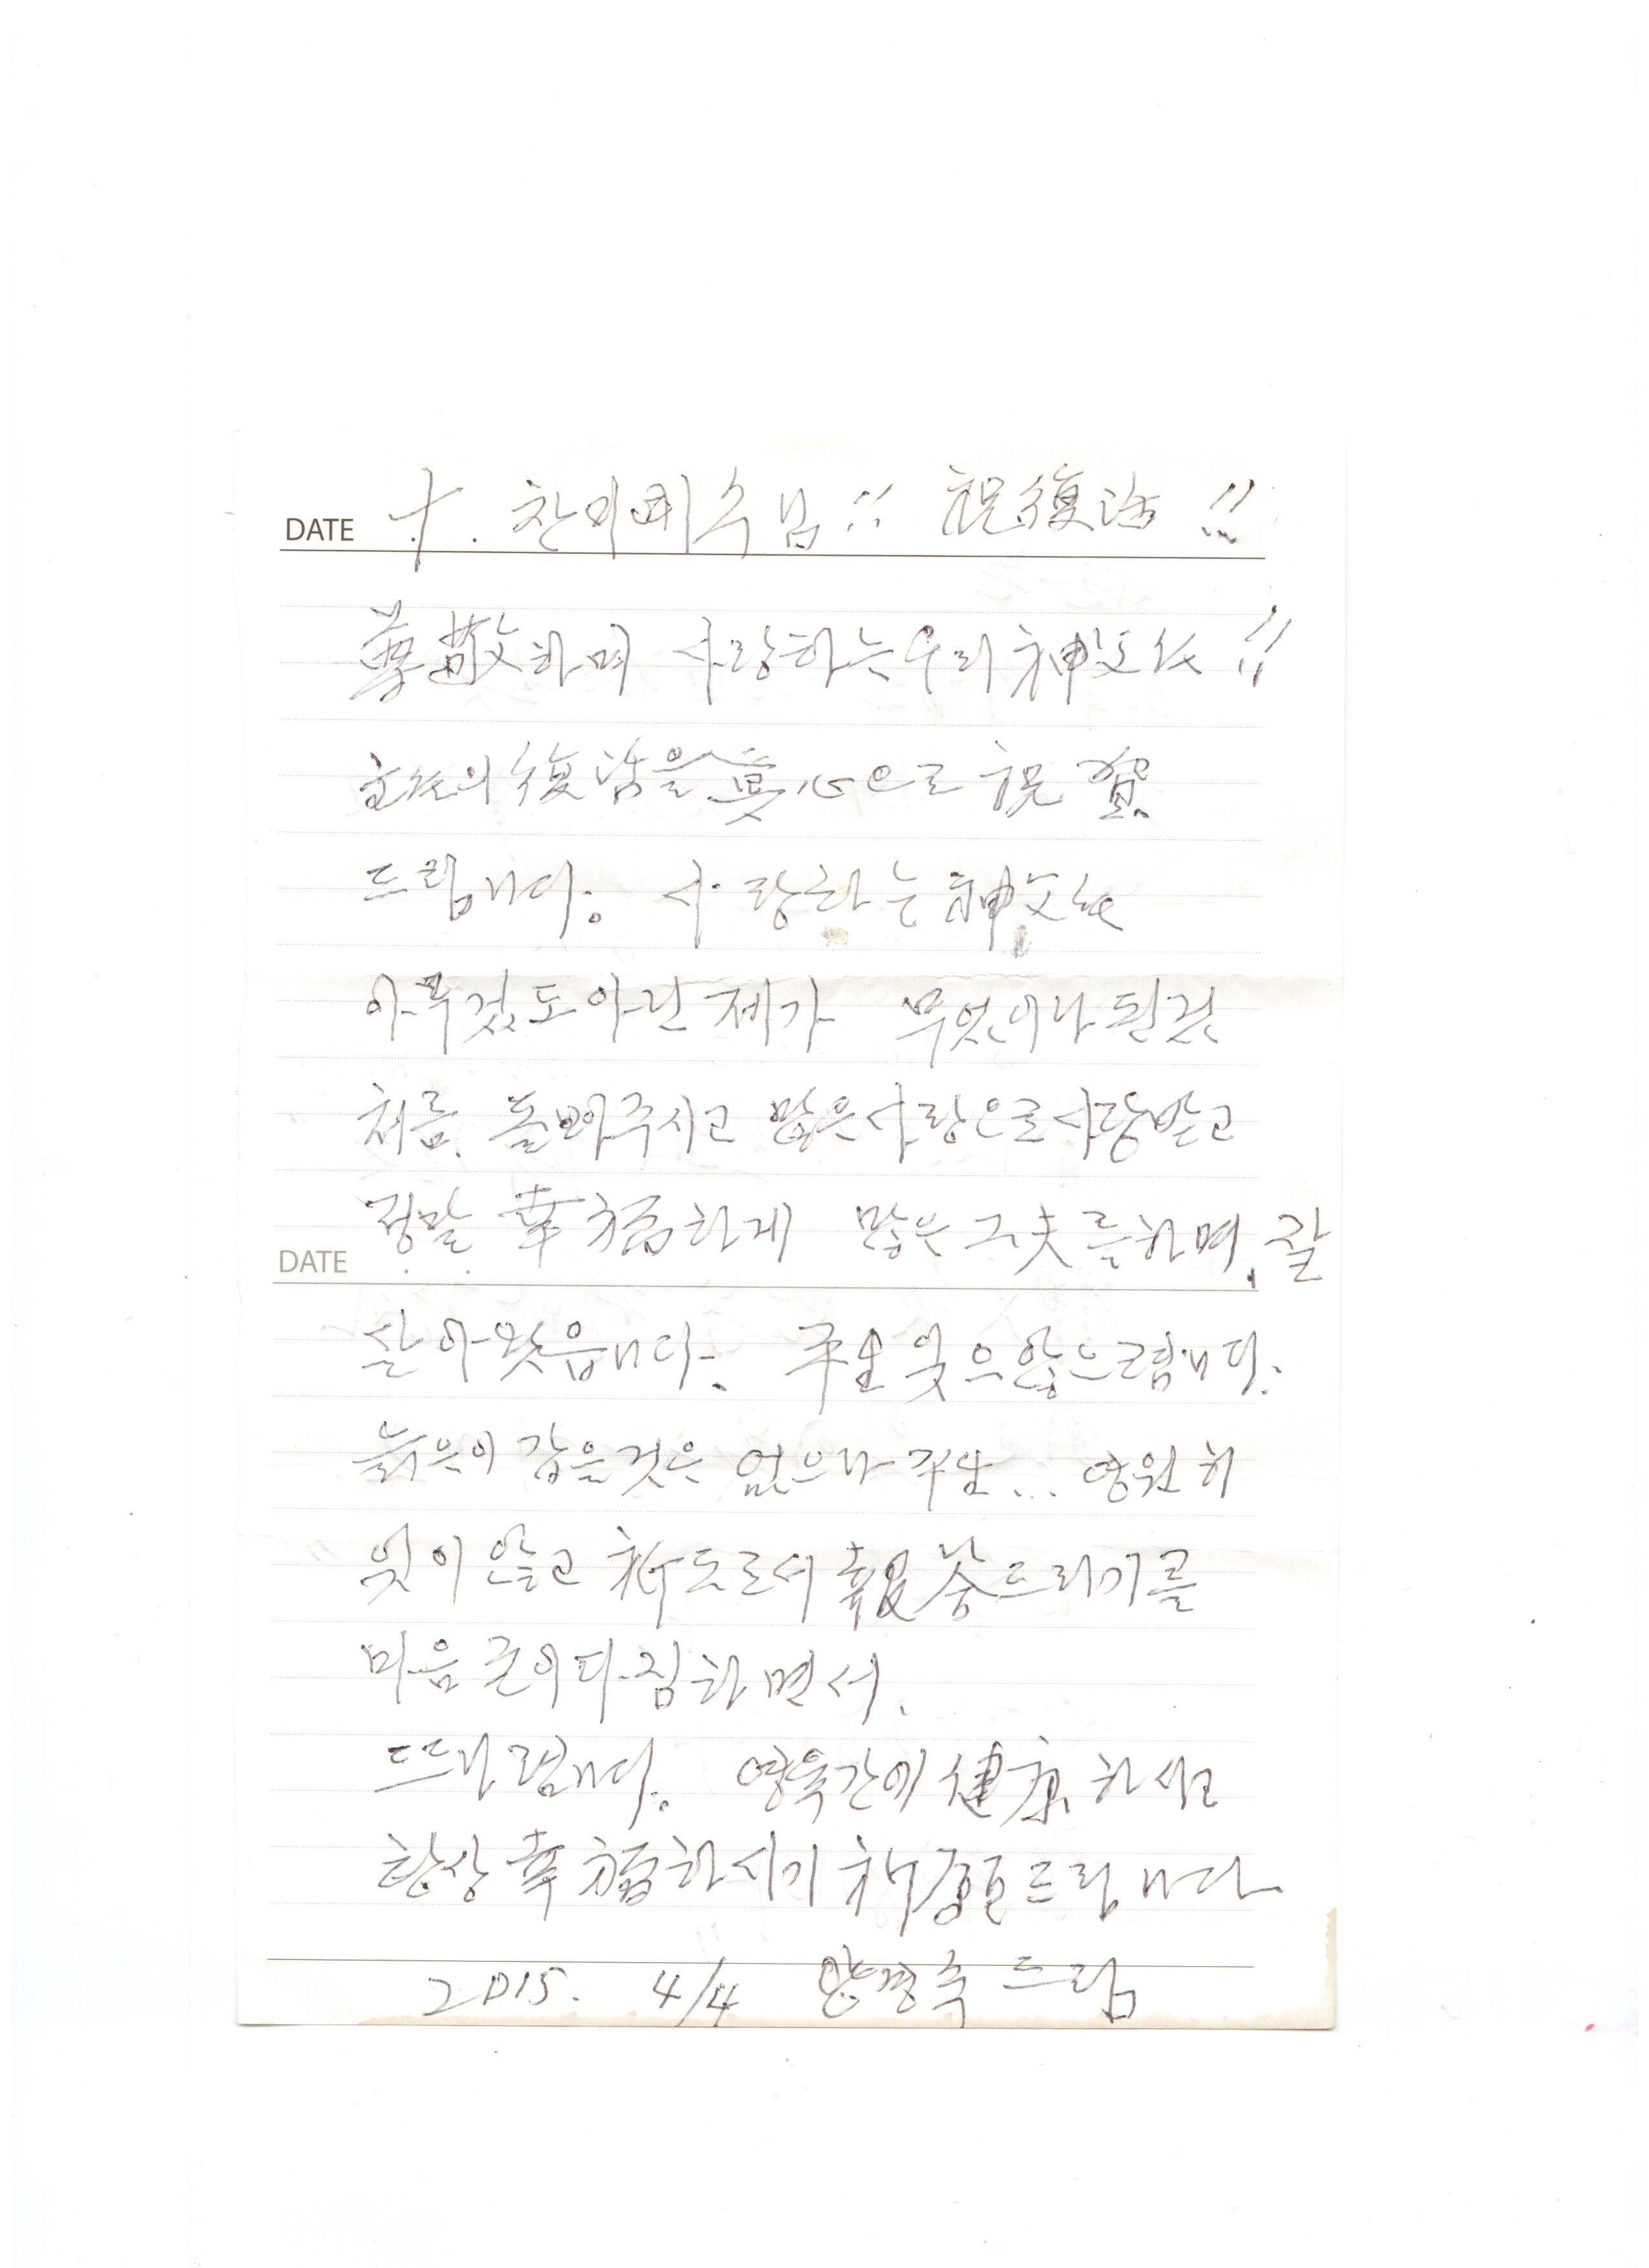 DATE † . 찬미예수님!! 祝復活 !!
尊敬하며 사랑하는 우리 神父任 !!
主任의 復活을 眞心으로 祝賀
드립니다. 사랑하는 神父任
아무것도 아닌 제가 무엇이나 된것
처름. 돌봐주시고 많은 사랑으로 사랑받고
정말 幸福하게 많은 工夫를 하며, 잘
DATE
살아왓읍니다. 平生 잊으않으렵니다.
늙은이 갚을것은 없으나 平生... 영원히
잊이 않고 祈도로서 報答드리기를
마음 굳이 다짐하면서.
드립니다. 영육간에 健康하시고
항상 幸福하시기 祈願드립니다
2015. 4/4 드림